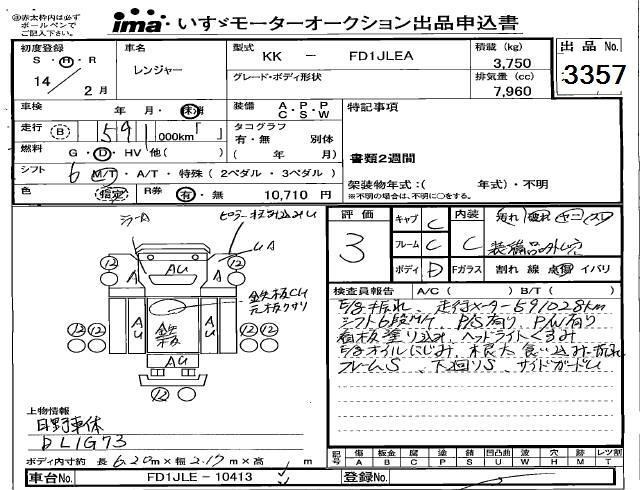 ※赤太枠内は必ず
ボールペンで
ご記入下さい。
ima いすゞモーターオークション出品申込書
初度登録
S・H・R
14 2月
車名
レンジャー
型式 KK － FD1JLEA
グレード・ボディ形状
積載 (kg)
3,750
排気量 (cc)
7,960
出品 No.
3357
車検 年・月・抹消
装備 A・P・P
C・S・W
特記事項
走行 B 591 000km「 」
タコグラフ
有・無 別体
( 年 月)
燃料 G・D・HV 他( )
書類2週間
シフト 6 M/T・A/T・特殊 (2ペダル・3ペダル)
色 指定 R券 有・無 10,710 円
架装物年式:( 年式)・不明
※不明の場合は、不明に○をする。
評価
3
キャブ C
フレーム C
ボディ D
内装 C
汚れ 破れ ヤニ スレ
装備品外し穴
Fガラス 割れ 線 点傷 イバリ
ミラーA
UA
12 12
AU
A A
AU AU
鉄板
鉄板CU
元板クサリ
12 12 12 12
AU
12
検査員報告 A/C ( ) B/T ( )
走行メーター591028km
シフト6段MT、P/S有り P/W有り
ヘッドライトくもり
オイルにじみ
フレームS、下廻りS、サイドガードU
上物情報
日野車体
DL1G73
ボディ内寸約 長 6.20m×幅 2.17m×高 m
記号 傷 板金 腐 塗 錆 凹凸曲 波 穴 跡 レツ割
A B C P S U W H M T
車台No. FD1JLE－10413
登録No.